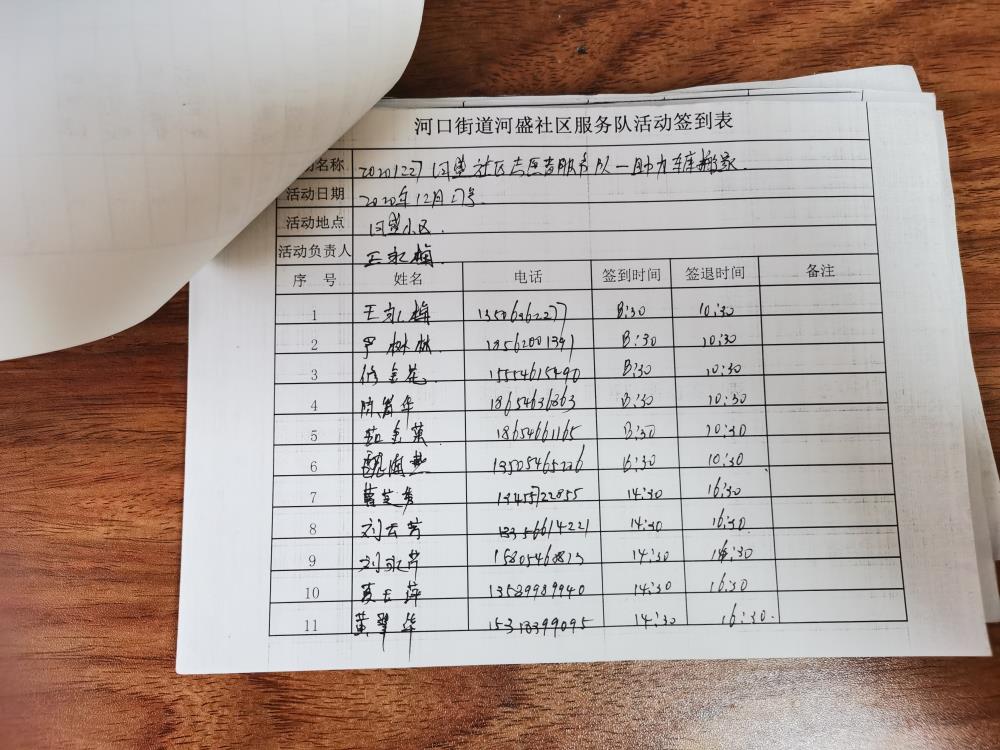 河口街道河盛社区服务队活动签到表
名称 20201227河盛社区志愿者服务队一助力车库搬家
活动日期 2020年12月27号
活动地点 河盛小区
活动负责人 王永梅
序 号 姓名 电话 签到时间 签退时间 备注
1 王永梅 8:30 10:30
2 罗林林 18562001391 8:30 10:30
3 修金花 15554615490 8:30 10:30
4 陈 华 18654636863 8:30 10:30
5 金 18654661165 8:30 10:30
6 13505465226 10:30
7 14:30 16:30
8 刘云芳 13356614221 14:30 16:30
9 刘永芹 15805460813 14:30 16:30
10 13589989940 14:30 16:30
11 黄翠华 15318399095 14:30 16:30